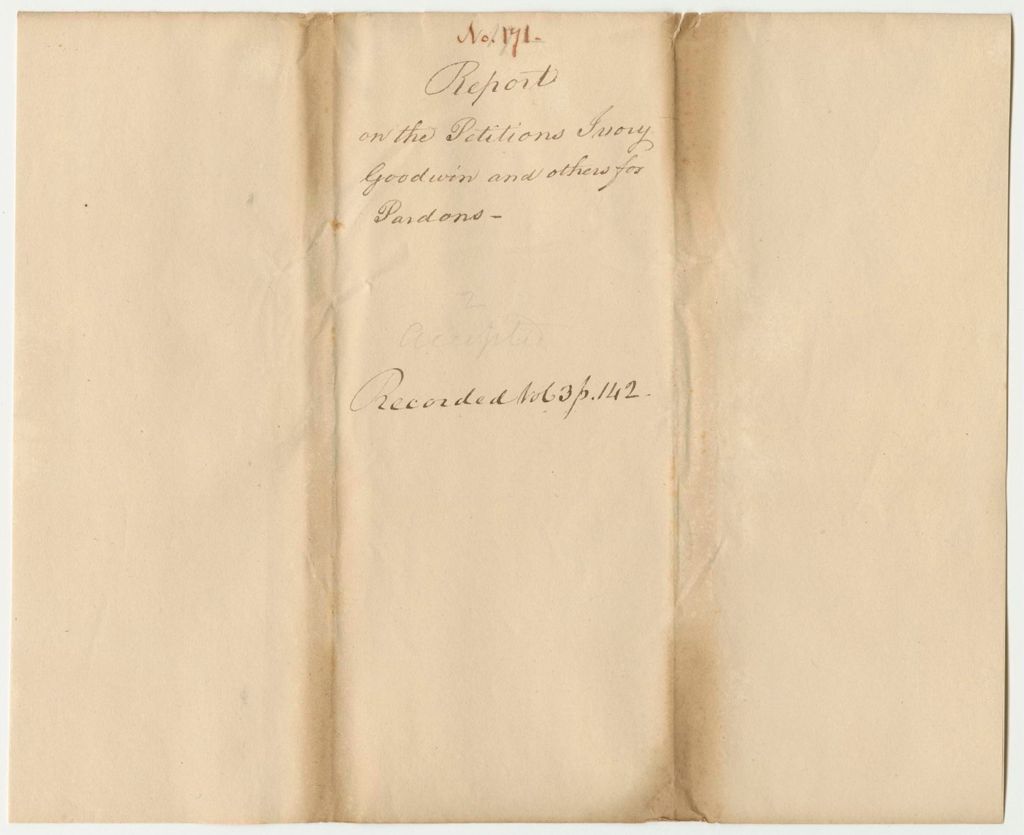 No. 171.
Report
on the Petitions Ivory
Goodwin and others for
Pardons—
2
Accepted
Recorded Vol 3 p. 142.